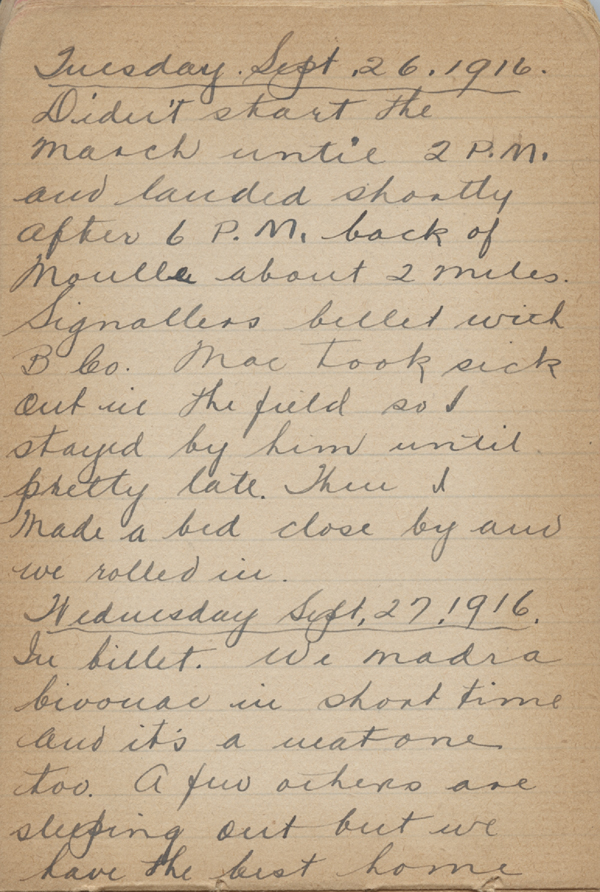 Tuesday. Sept. 26. 1916.
Didn't start the
march until 2 P.M.
and landed shortly
after 6 P.M. back of
Moulle about 2 miles.
Signallers billet with
B Co. Mac took sick
out in the field so I
stayed by him until
pretty late. Then I
made a bed close by and
we rolled in.
Wednesday Sept. 27. 1916.
In billet. We madra
bivouac in short time
and it's a neat one
too. A few others are
sleeping out but we
have the best home